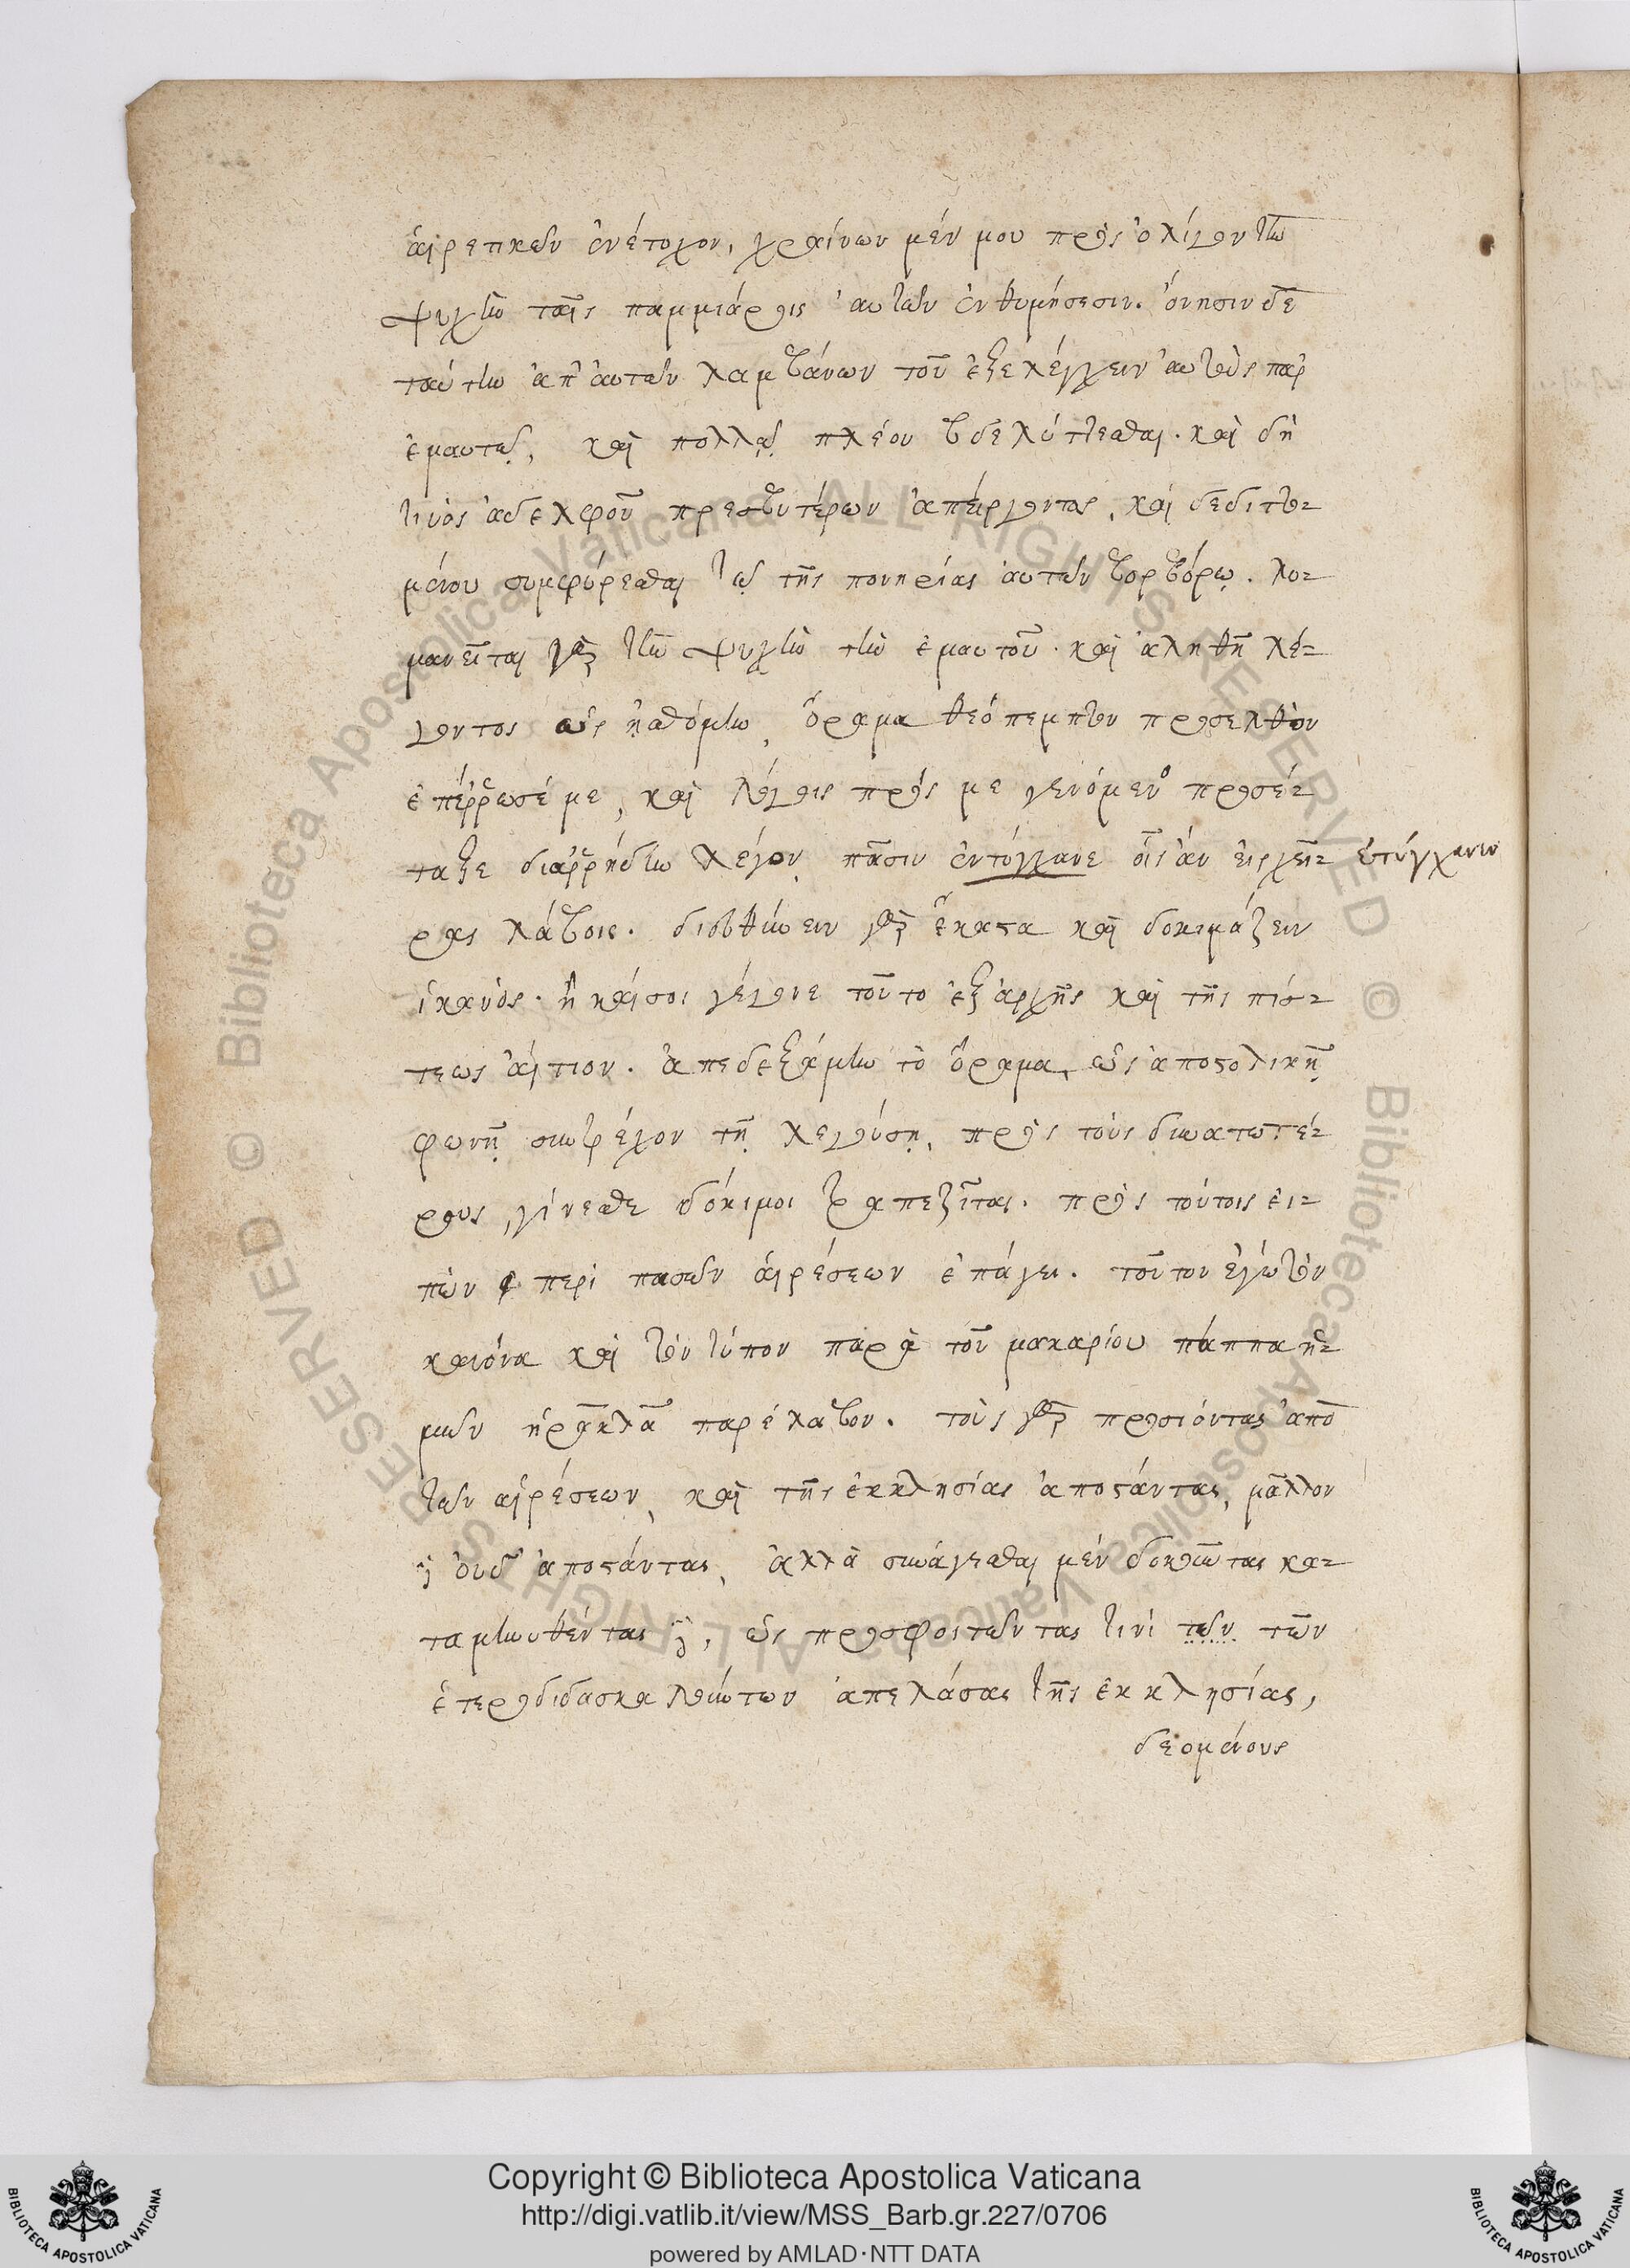 αἱρετικῶν ἐνέτυχον, χραίνων μέν μου πρὸς ὀλίγον τὴν
ψυχὴν ταῖς παμμιάροις αὐτῶν ἐνθυμήσεσιν. ὄνησιν δὲ
ταύτην ἀπ' αὐτῶν λαμβάνων τοῦ ἐξελέγχειν αὐτοὺς παρ'
ἐμαυτῷ, καὶ πολλῷ πλέον βδελύττεσθαι. καὶ δὴ
τινὸς ἀδελφοῦ πρεσβυτέρων ἀπείργοντος, καὶ δεδιττο-
μένου συμφύρεσθαι τῷ τῆς πονηρίας αὐτῶν βορβόρῳ. λυ-
μανεῖται γὰρ τὴν ψυχὴν τὴν ἐμαυτοῦ. καὶ ἀληθῆ λέ-
γοντος ὡς ᾐσθόμην, ὅραμα θεόπεμπτον προσελθὸν
ἐπέῤῥωσέ με, καὶ λόγοις πρός με γενόμενο προσέ-
ταξε διαῤῥήδην λέγον, πᾶσιν ἐντύγχανε οἷς ἂν εἰς χεῖ-
ρας λάβοις. διευθύνειν γὰρ ἕκαστα καὶ δοκιμάζειν
ἱκανός. ἦ καί σοι γέγονε τοῦτο ἐξ ἀρχῆς καὶ τῆς πίσ-
τεως αἴτιον. ἀπεδεξάμην τὸ ὅραμα, ὡς ἀποστολικῇ
φωνῇ συντρέχον τῇ λεγούσῃ, πρὸς τοὺς δυνατωτέ-
ρους, γίνεσθε δόκιμοι τραπεζῖται. πρὸς τούτοις εἰ-
πὼν περὶ πασῶν αἱρέσεων ἐπάγει. τοῦτον ἐγὼ τὸν
κανόνα καὶ τὸν τύπον παρὰ τοῦ μακαρίου πάππα ἡ-
μῶν ἡρακλᾶ παρέλαβον. τοὺς γὰρ προσιόντας ἀπὸ
τῶν αἱρέσεων, καὶ τῆς ἐκκλησίας ἀποστάντας, μᾶλλον
δὲ οὐδ' ἀποστάντας, ἀλλὰ συνάγεσθαι μὲν δοκοῦντας κα-
ταμηνυθέντας δὲ, ὡς προσφοιτῶντάς τινι τῶν τῶν
ἑτεροδιδασκαλούντων ἀπελάσας τῆς ἐκκλησίας,
δεομένους
ἐτύγχανεν
Copyright © Biblioteca Apostolica Vaticana
http://digi.vatlib.it/view/MSS_Barb.gr.227/0706
powered by AMLAD·NTT DATA
BIBLIOTECA APOSTOLICA VATICANA
BIBLIOTECA APOSTOLICA VATICANA
© Biblioteca Apostolica Vaticana ALL RIGHTS RESERVED © Biblioteca Apostolica Vaticana ALL RIGHTS RESERVED